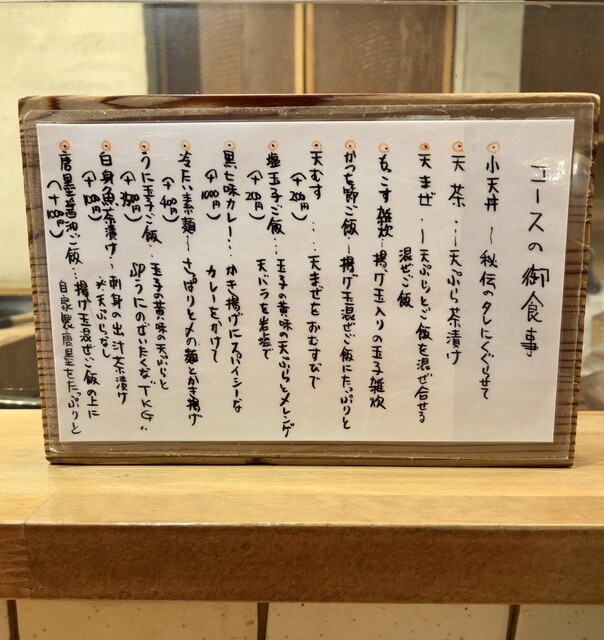 コースの御食事
小天丼 〜 秘伝のタレにくぐらせて
天茶・・〜天ぷら茶漬け
天まぜ 〜天ぷらとご飯を混ぜ合せる
混ぜご飯
もっこす雑炊…揚げ玉入りの玉子雑炊
かつを節ご飯〜揚げ玉混ぜご飯にたっぷりと
天むす・・・・天まぜをおむすびで
(+200円)
塩玉子ご飯・・玉子の黄味の天ぷらとメレンゲ
(+200円) 天バラを岩塩で
黒七味カレー・・かき揚げにスパイシーな
(+1000円) カレーをかけて
冷たい素麺〜さっぱりと〆の麺とかき揚げ
(+400円)
うに玉子ご飯・・玉子の黄味の天ぷらと
spうにのぜいたくな"TKG"
白身魚茶漬け・・刺身の出汁茶漬け
※天ぷらなし
唐墨醤油ご飯・・・揚げ玉混ぜご飯の上に
自家製唐墨をたっぷりと